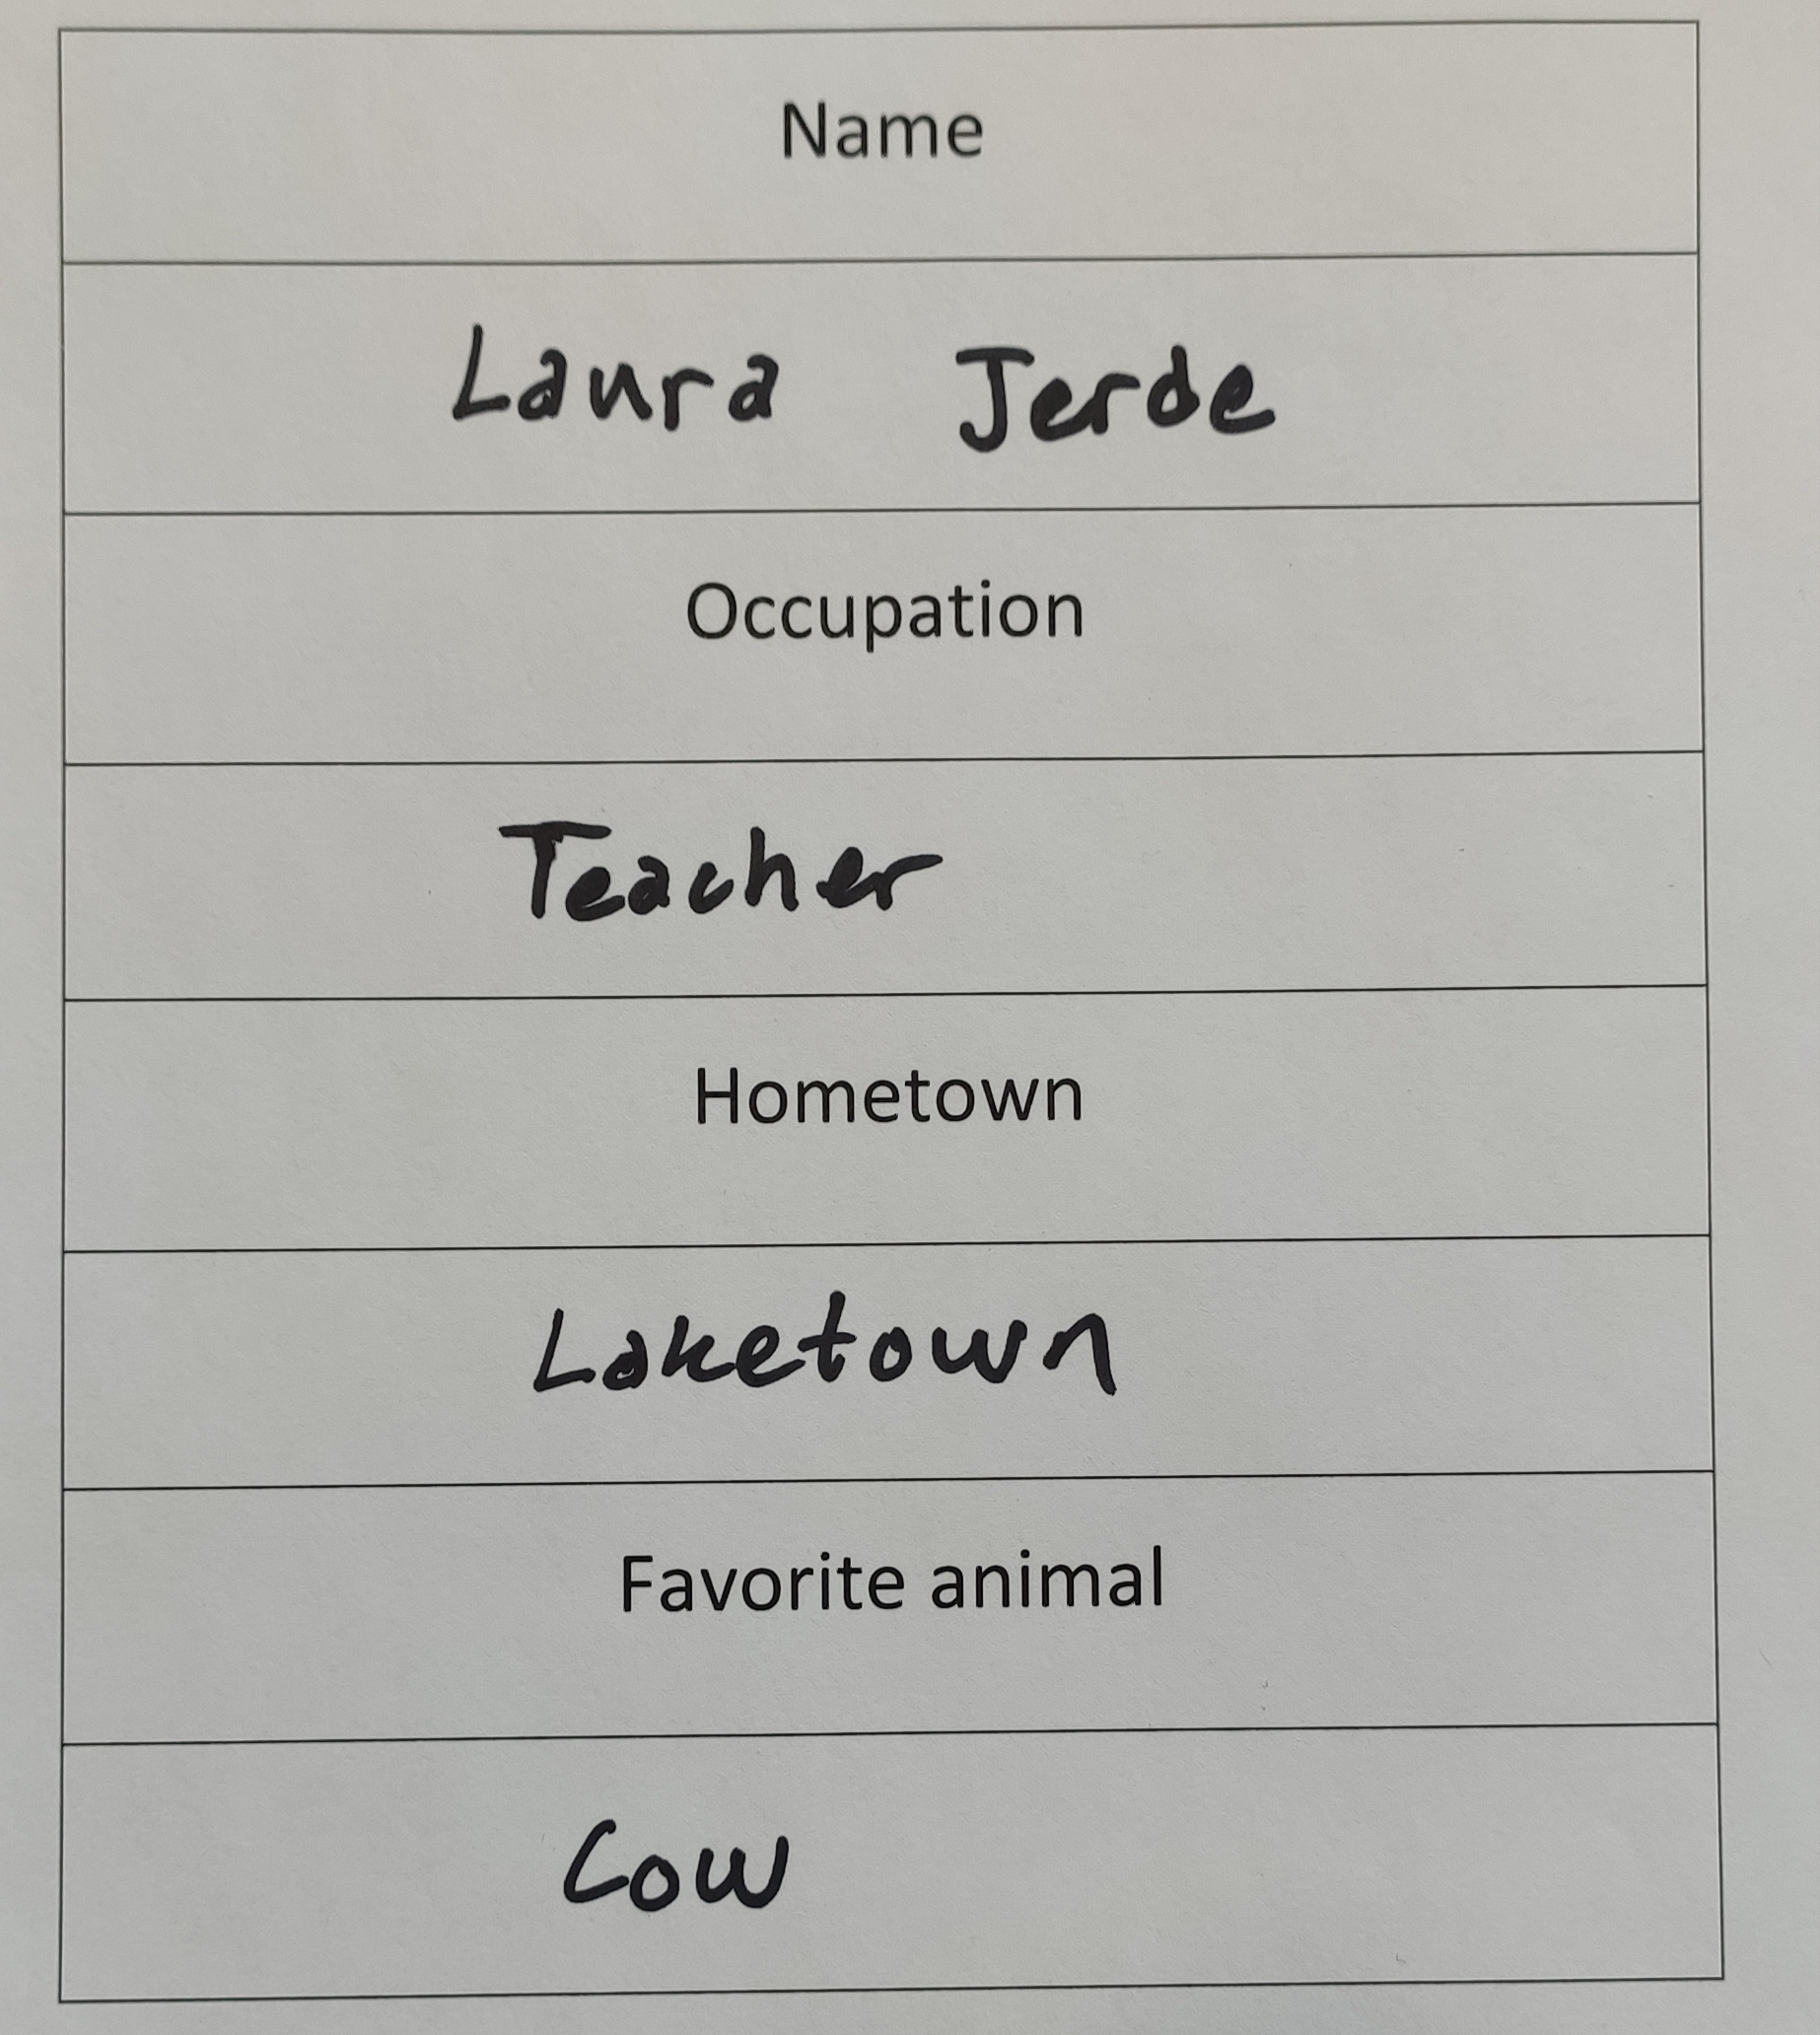 Name
Laura Jerde
Occupation
Teacher
Hometown
Laketown
Favorite animal
Cow